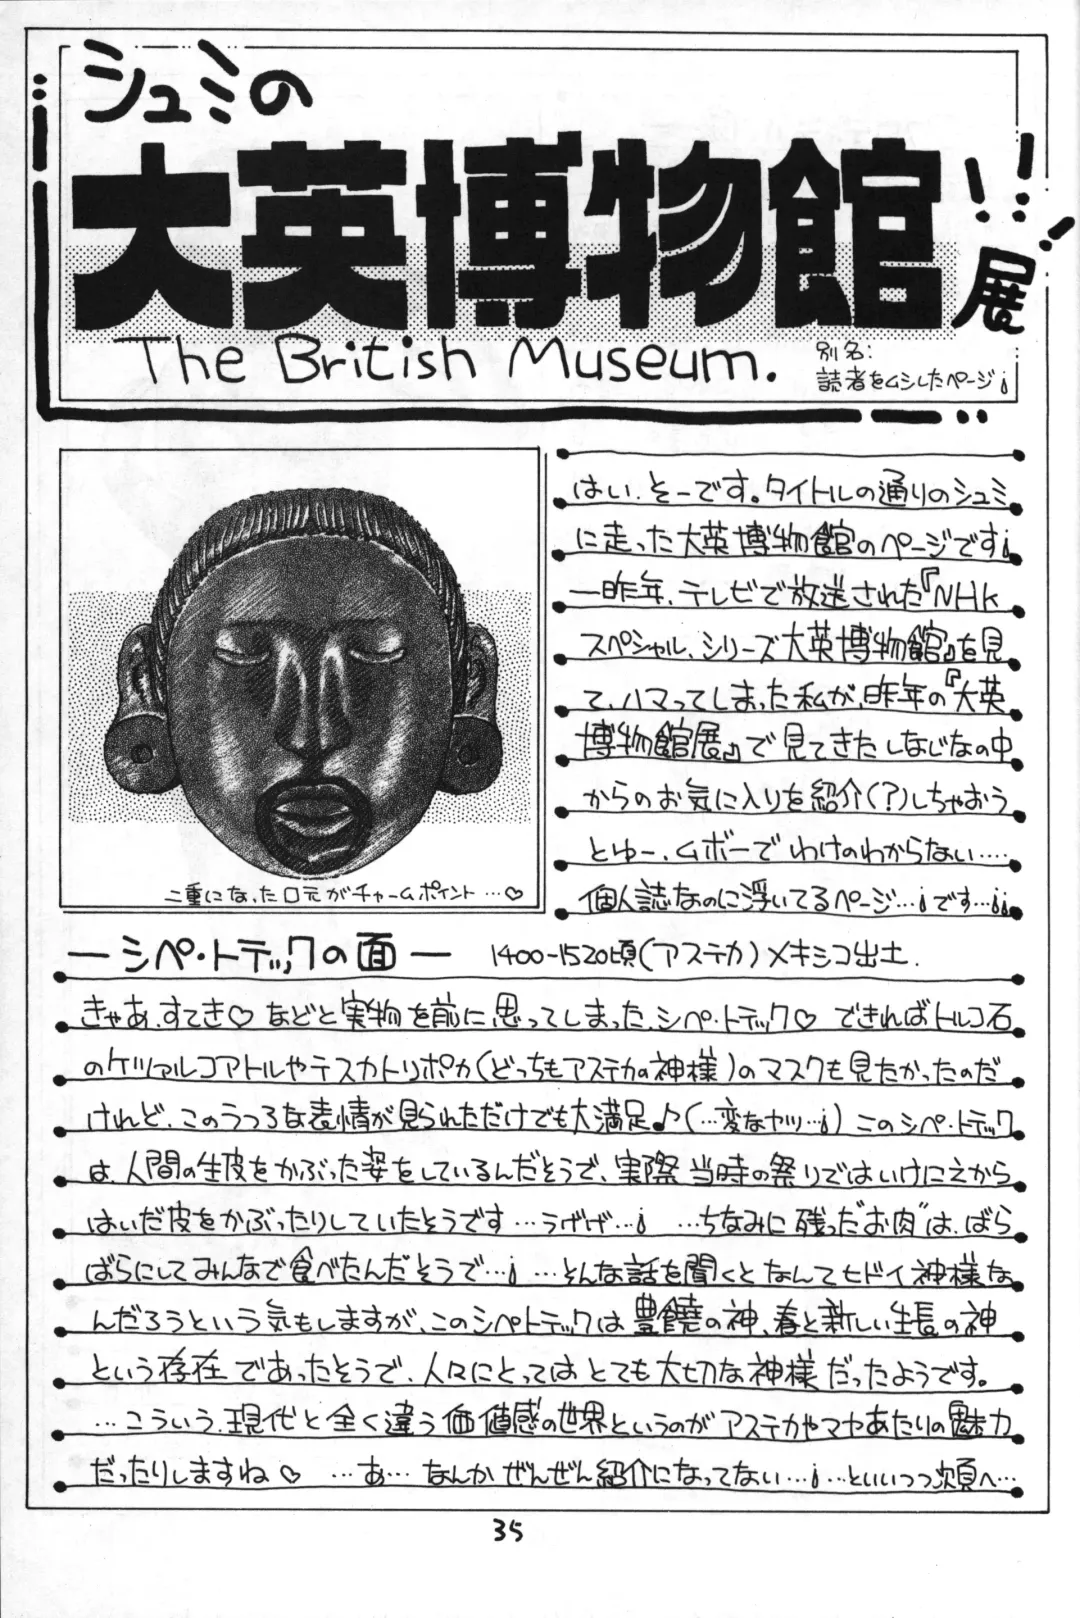 シュミの
大英博物館展!!!
The British Museum.
別名:
読者をムシしたページ¡
はい、そーです。タイトルの通りのシュミ
に走った大英博物館のページです¡
一昨年、テレビで放送された『NHK
スペシャル、シリーズ大英博物館』を見
て、ハマってしまった私が、昨年の『大英
博物館展』で見てきたしなじなの中
からのお気に入りを紹介(?)しちゃおう
とゆー、ムボーでわけのわからない‥‥
個人誌なのに浮いてるページ…¡です…¡¡
二重になった口元がチャームポイント…♡
―シペ・トテックの面― 1400-1520頃(アステカ)メキシコ出土.
きゃあ、すてき♡ などと実物を前に思ってしまった、シペ・トテック♡ できればトルコ石
のケツァルコアトルやテスカトリポカ(どっちもアステカの神様)のマスクも見たかったのだ
けれど、このうつろな表情が見られただけでも大満足♪(…変なヤツ…¡)このシペ・トテック
は、人間の生皮をかぶった姿をしているんだそうで、実際当時の祭りではいけにえから
はいだ皮をかぶったりしていたそうです…うげげ…¡ …ちなみに残った"お肉"は、ばら
ばらにしてみんなで食べたんだそうで…¡ …そんな話を聞くとなんてヒドイ神様な
んだろうという気もしますが、このシペトテックは豊饒の神、春と新しい生長の神
という存在であったそうで、人々にとってはとても大切な神様だったようです。
…こういう、現代と全く違う価値感の世界というのがアステカやマヤあたりの魅力
だったりしますね♡ …あ… なんかぜんぜん紹介になってない…¡…といいつつ次頁へ…
35